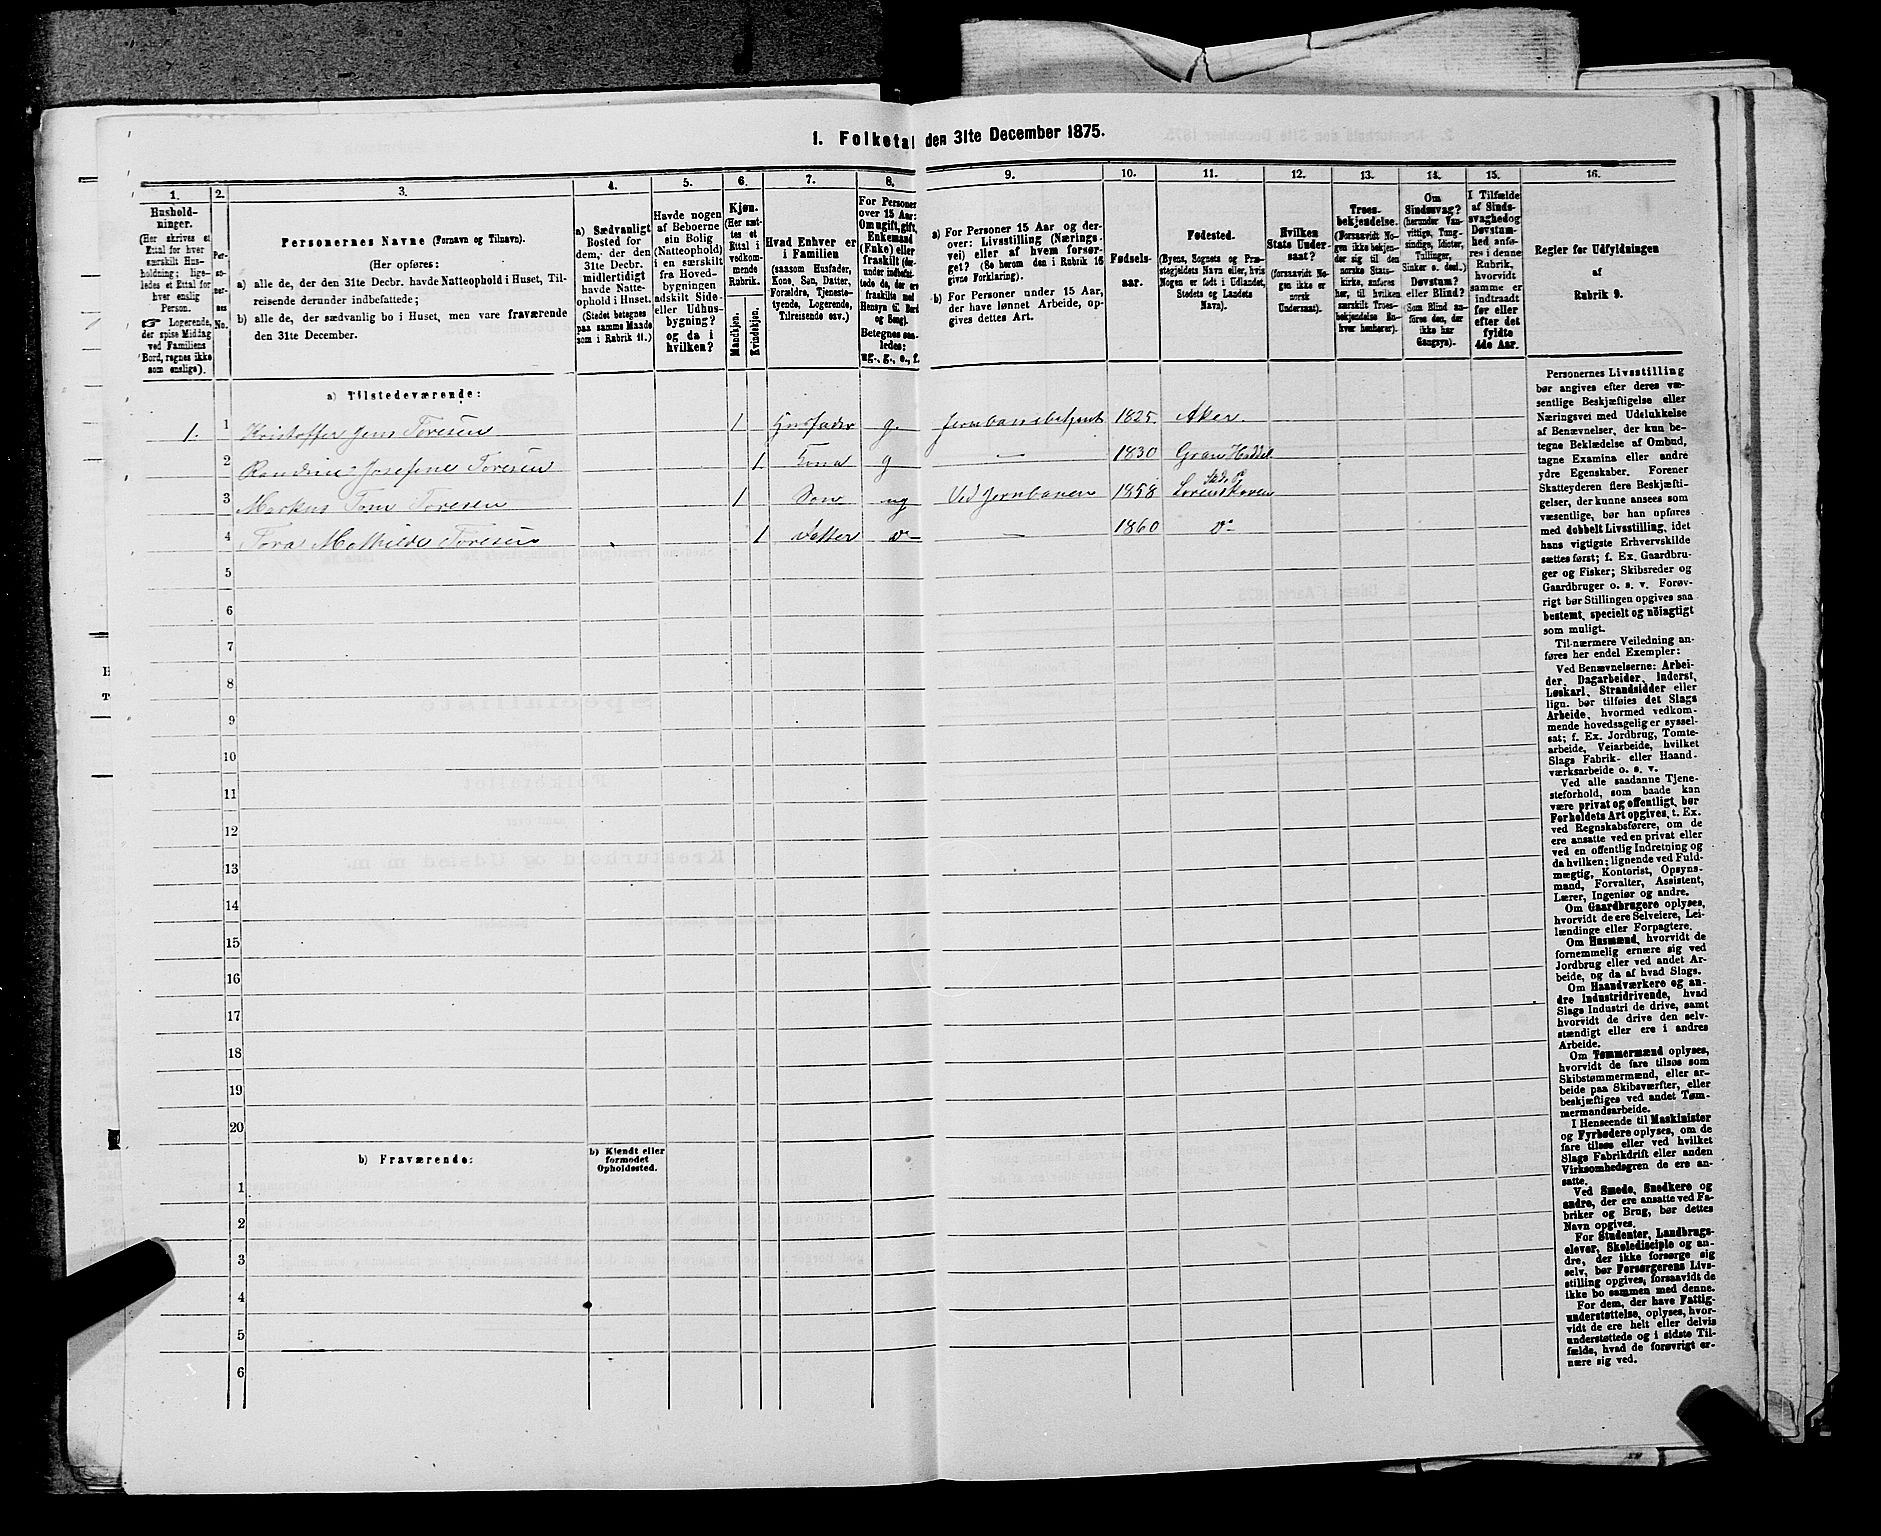 1. Folketal den 31te December 1875.
1.
2.
3.
4.
5.
6.
7.
8.
9.
10.
11.
12.
13.
14.
15.
16.
Husholdninger.
(Her skrives et
Ettal for hver
særskilt Husholdning; ligeledes
et Ettal for
hver enslig
Person.
☞ Logerende,
der spise Middag
ved Familiens
Bord, regnes ikke
som enslige).
Personernes No.
Personernes Navne (Fornavn og Tilnavn).
(Her opføres:
a) alle de, der den 31te Decbr. havde Natteophold i Huset, Tilreisende
derunder indbefattede;
b) alle de, der sædvanlig bo i Huset, men vare fraværende
den 31te December.
a) Sædvanligt
Bosted for
dem, der den
31te Decbr.
midlertidigt
havde Natteophold
i Huset.
(Stedet betegnes
paa samme Maade
som i Rubrik 11.)
Havde nogen
af Beboerne
sin Bolig
(Natteophold)
i en særskilt
fra Hovedbygningen
adskilt Side-
eller Udhusbygning?
og da i
hvilken?
Kjøn.
(Her sættes
et
Ettal i
vedkommende
Rubrik.
Mandkjøn.
Kvindekjøn.
Hvad Enhver er
i Familien
(saasom Husfader,
Kone, Søn, Datter,
Forældre, Tjenestetyende,
Logerende,
Tilreisende osv.)
For Personer
over 15 Aar:
Om ugift, gift,
Enkemand
(Enke) eller
fraskilt
Betegnes saaledes:
ug., g., e., f.
a) For Personer 15 Aar og derover:
Livsstilling (Næringsvei)
eller af hvem forsørget?
(Se herom den i Rubrik 16
givne Forklaring).
b) For Personer under 15 Aar,
der have lønnet Arbeide, opgives
dettes Art.
Fødselsaar.
Fødested.
(Byens, Sognets og Præstegjeldets
Navn eller, hvis
Nogen er født i Udlandet,
Stedets og Landets
Navn).
Hvilken
Stats Undersaat?
(forsaavidt Nogen
ikke er
norsk
Undersaat).
Troesbekjendelse.
(Forsaavidt Nogen
ikke bekjender
sig til den
norske Statskirke,
anføres
her, til hvilken
særskilt Troesbekjendelse
Enhver
henhører).
Om
Sindssvag?
(herunder Vanvittige,
Tungsindige,
Idioter,
Tullinger,
Sinker o. desl.)
Døvstum?
eller Blind?
(Som Blind anføres
den, der
ikke har
Gangsyn).
I Tilfælde
af Sindssvaghed og
Døvstumhed
anføres
i denne
Rubrik,
hvorvidt
samme er
indtraadt
før eller
efter det
fyldte
4de Aar.
Regler for Udfyldningen
af
Rubrik 9.
a) Tilstedeværende:
1. 1 Kristoffer Jens Toresen 1 Husfader g. Jernbanebetjent 1825. Aker.
2 Josefine Toresen 1 Kona g — 1830 Gran
3 Markus Toresen 1 Søn ug Ved Jernbanen 1858 Lørenskoven
4 Tora Mathilde Toresen 1 Datter do — 1860 do
5
6
7
8
9
10
11
12
13
14
15
16
17
18
19
20
b) Fraværende:
b) Kjendt eller
formodet
Opholdssted.
1
2
3
4
5
6
Personernes Livsstilling
bør angives efter deres væsentlige
Beskjæftigelse eller
Næringsvei med Udelukkelse
af Benævnelser, der kun betegne
Beklædelse af Ombud,
tagne Examina eller andre
ydre Egenskaber. Forener
Skatteyderen flere Beskjæftigelser,
der kunne ansees som
væsentlige, bør han opføres
med dobbelt Livsstilling, idet
hans vigtigste Erhvervskilde
sættes først; f. Ex. Gaardbruger
og Fisker; Skibsreder og
Gaardbruger o. s. v. Forøvrigt
bør Stillingen opgives saa
bestemt, specielt og nøiagtigt
som muligt.
Til nærmere Veiledning anføres
her endel Exempler:
Ved Benævnelserne: Arbeider,
Dagarbeider, Inderst,
Løskarl, Strandsidder eller
lign. bør tilføies det Slags
Arbeide, hvormed vedkommende
hovedsagelig er sysselsat;
f. Ex. Jordbrug, Tomtearbeide,
Veiarbeide, hvilket
Slags Fabrik- eller Haandværksarbeide
o. s. v.
Ved alle saadanne Tjenesteforhold,
som baade kan
være privat og offentligt, bør
Forholdets Art opgives, t. Ex.
ved Regnskabsførere, om de
ere ansatte ved en privat eller
ved en offentlig Indretning og
da hvilken; lignende ved Fuldmægtig,
Kontorist, Opsynsmand,
Forvalter, Assistent,
Lærer, Ingeniør og andre.
Om Gaardbrugere oplyses,
hvorvidt de ere Selveiere, Leilændinge
eller Forpagtere.
Om Husmænd, hvorvidt de
fornemmelig ernære sig ved
Jordbrug eller ved andet Arbeide,
og da af hvad Slags.
Om Haandværkere og andre
Industridrivende, hvad
Slags Industri de drive, samt
hvorvidt de drive den selvstændigt
eller ere i andres
Arbeide.
Om Tømmermænd oplyses,
hvorvidt de fare tilsøs som
Skibstømmermænd, eller arbeide
paa Skibsværfter, eller
beskjæftiges ved andet Tømmermandsarbeide.
I Henseende til Maskinister
og Fyrbødere oplyses, om de
fare tilsøs eller ved hvilket
Slags Fabrikdrift eller anden
Virksomhedsgren de ere ansatte.
Ved Smede, Snedkere og
andre, der ere ansatte ved Fabriker
og Brug, bør dettes
Navn opgives.
For Studenter, Landbrugselever,
Skoledisciple og andre,
der ikke forsørge sig
selv, bør Forsørgerens Livsstilling
opgives, forsaavidt de
ikke bo sammen med denne.
For dem, der have Fattigunderstøttelse,
oplyses, hvorvidt
de ere helt eller delvis
understøttede og i sidste Tilfælde,
hvad de forøvrigt ernære
sig ved.